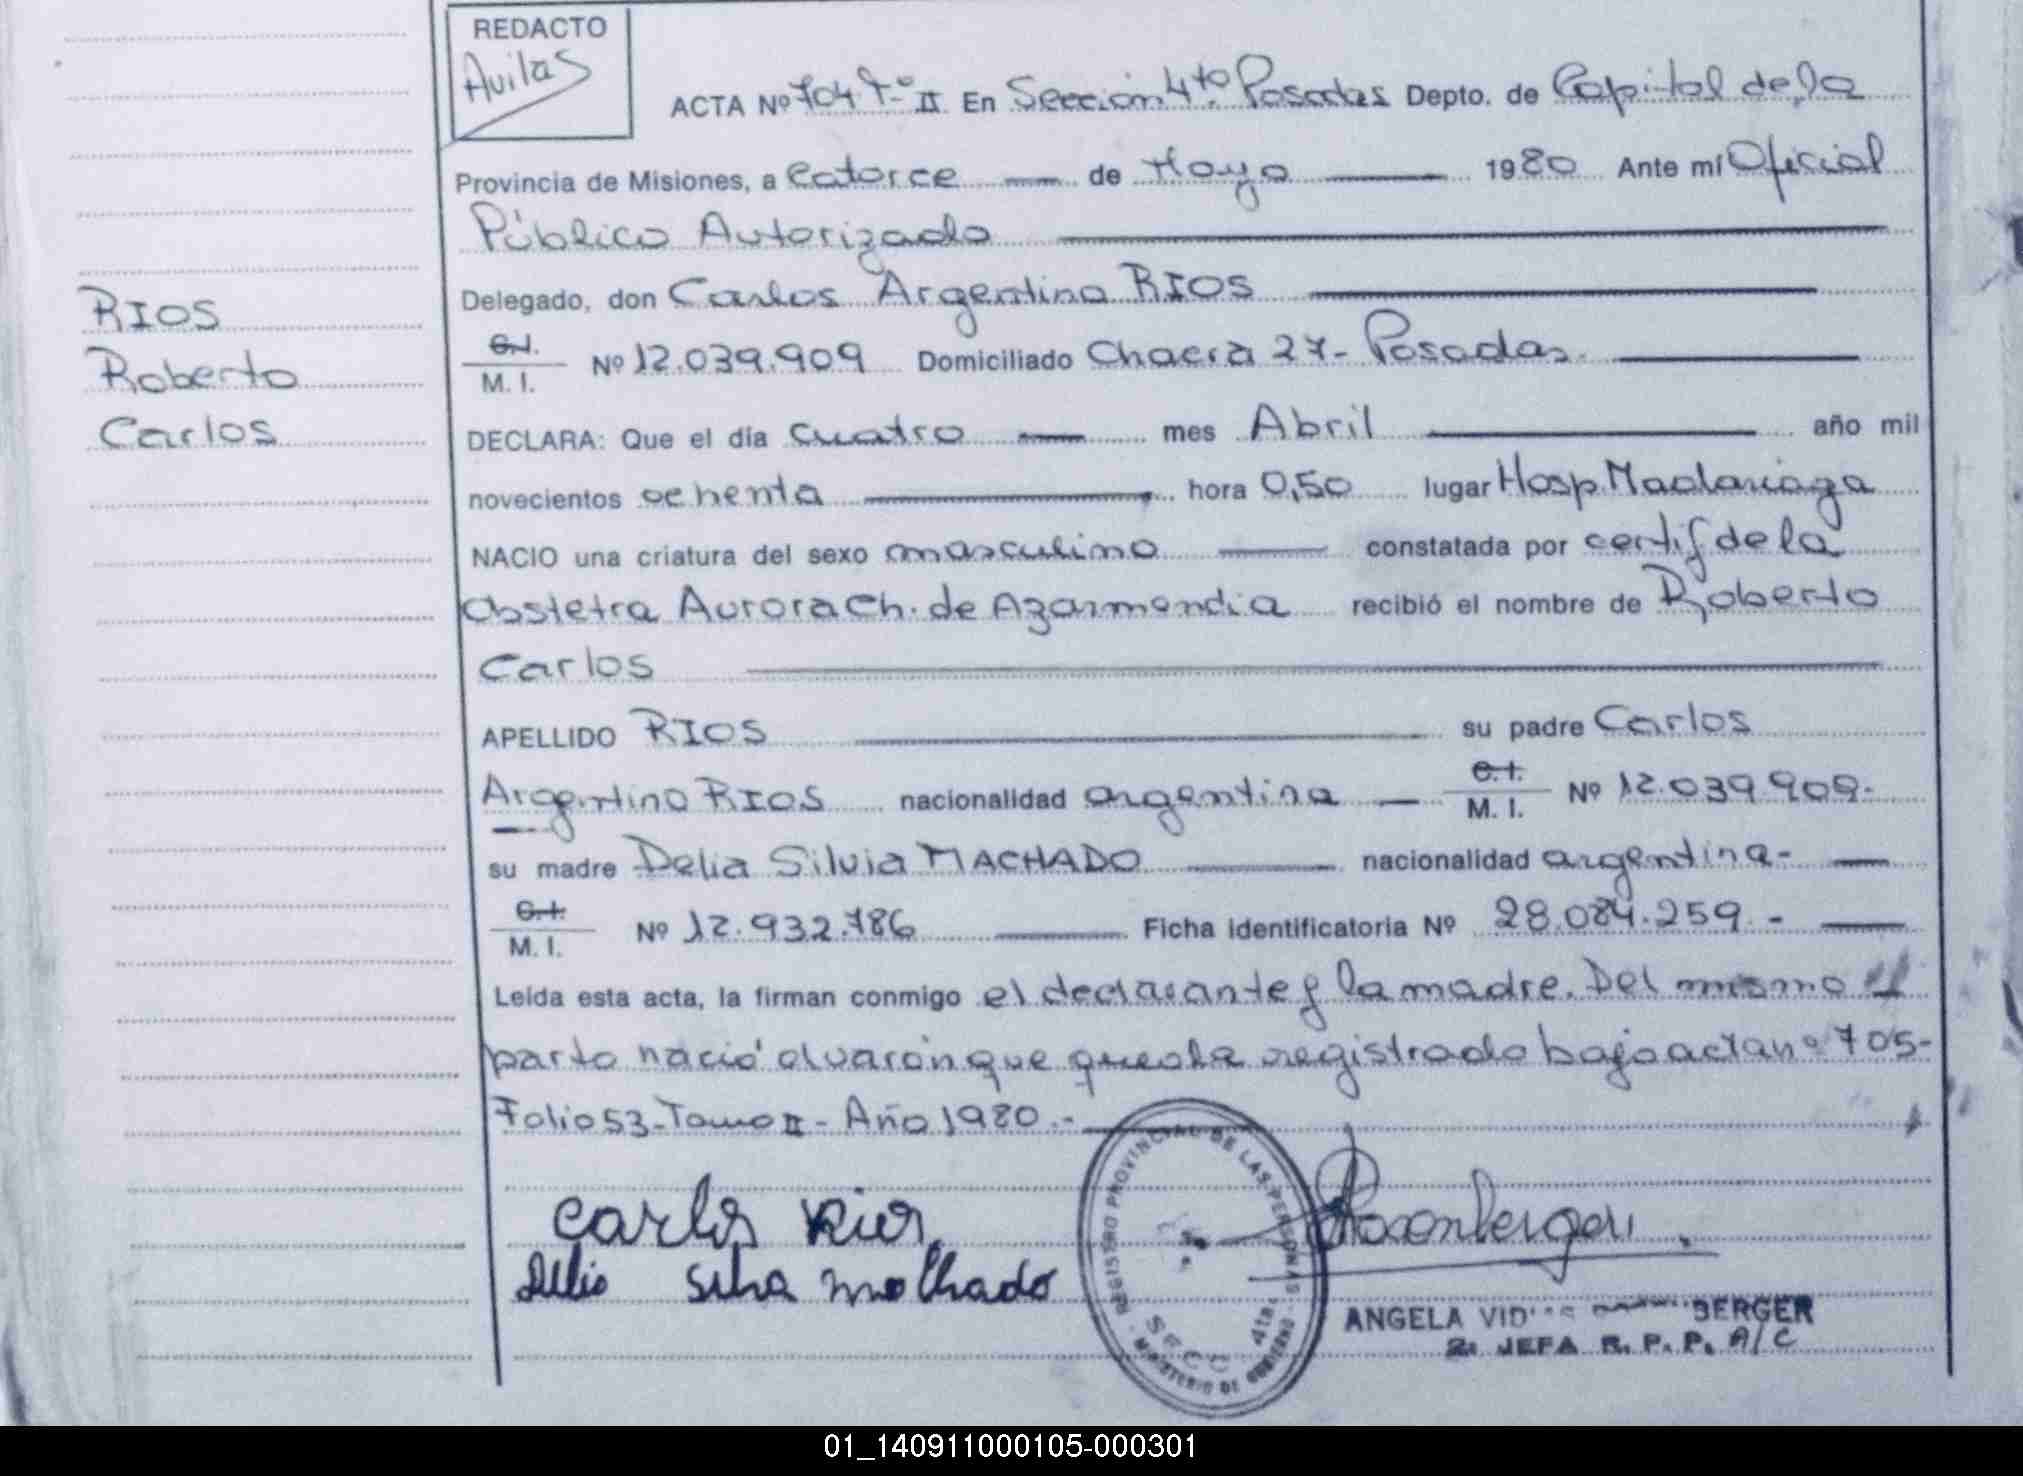 REDACTO
Avilas
ACTA Nº 704 Tº II En Sección 4to. Posadas Depto. de Capital de la
Provincia de Misiones, a catorce de Mayo 1980 Ante mí Oficial
Público Autorizado
Delegado, don Carlos Argentino RIOS
C.I. M. I. Nº 12.039.909 Domiciliado Chacra 27- Posadas.
DECLARA: Que el día cuatro mes Abril año mil
novecientos ochenta hora 0,50 lugar Hosp. Madariaga
NACIO una criatura del sexo masculino constatada por certif de la
Obstetra Aurora Ch. de Azarmendia recibió el nombre de Roberto
Carlos
APELLIDO RIOS su padre Carlos
Argentino RIOS nacionalidad argentina C.I. M. I. Nº 12.039.909.
su madre Delia Silvia MACHADO nacionalidad argentina-
C.I. M. I. Nº 12.932.786 Ficha identificatoria Nº 28.084.259.-
Leída esta acta, la firman conmigo el declarante y la madre. Del mismo
parto nació el varón que queda registrado bajo acta nº 705-
Folio 53-Tomo II- Año 1980.-
RIOS
Roberto
Carlos
Carlos Rios
Delia Silva Machado
Rosenberger
REGISTRO PROVINCIAL DE LAS PERSONAS
SECC. 4ta.
MINISTERIO DE GOBIERNO
ANGELA BERGER
2ª JEFA R. P. P. A/C
01_140911000105-000301